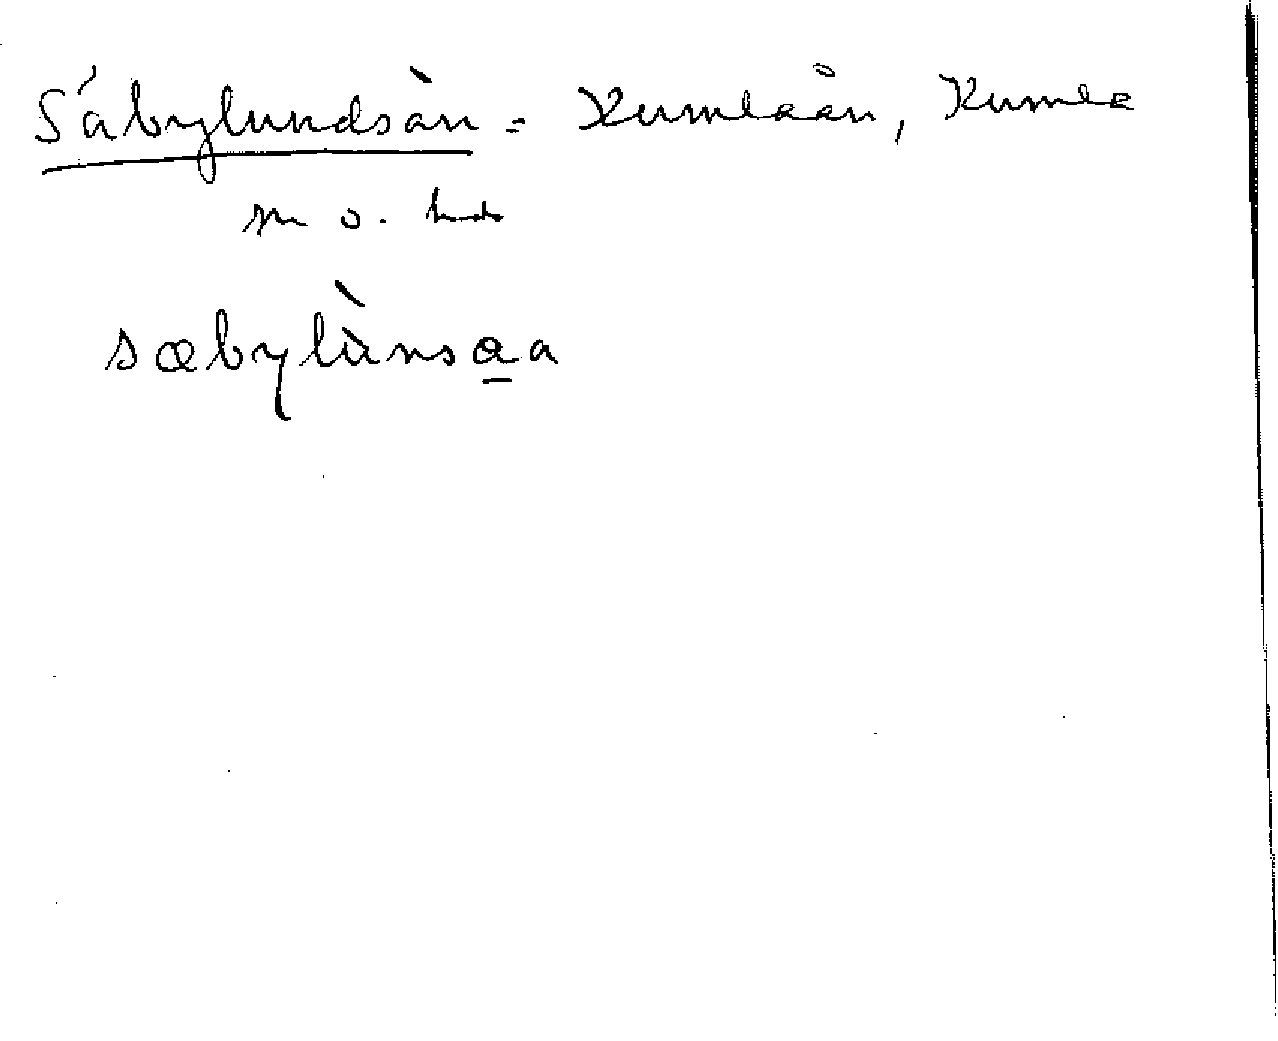 Säbylundsån = Kumlaån, Kumla
sn o. hd
sæbylùnsaa